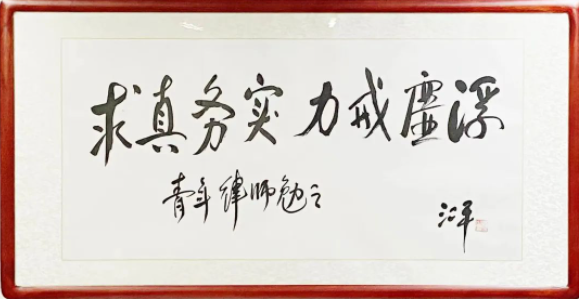 求真务实力戒虚浮
青年律师勉之
江平